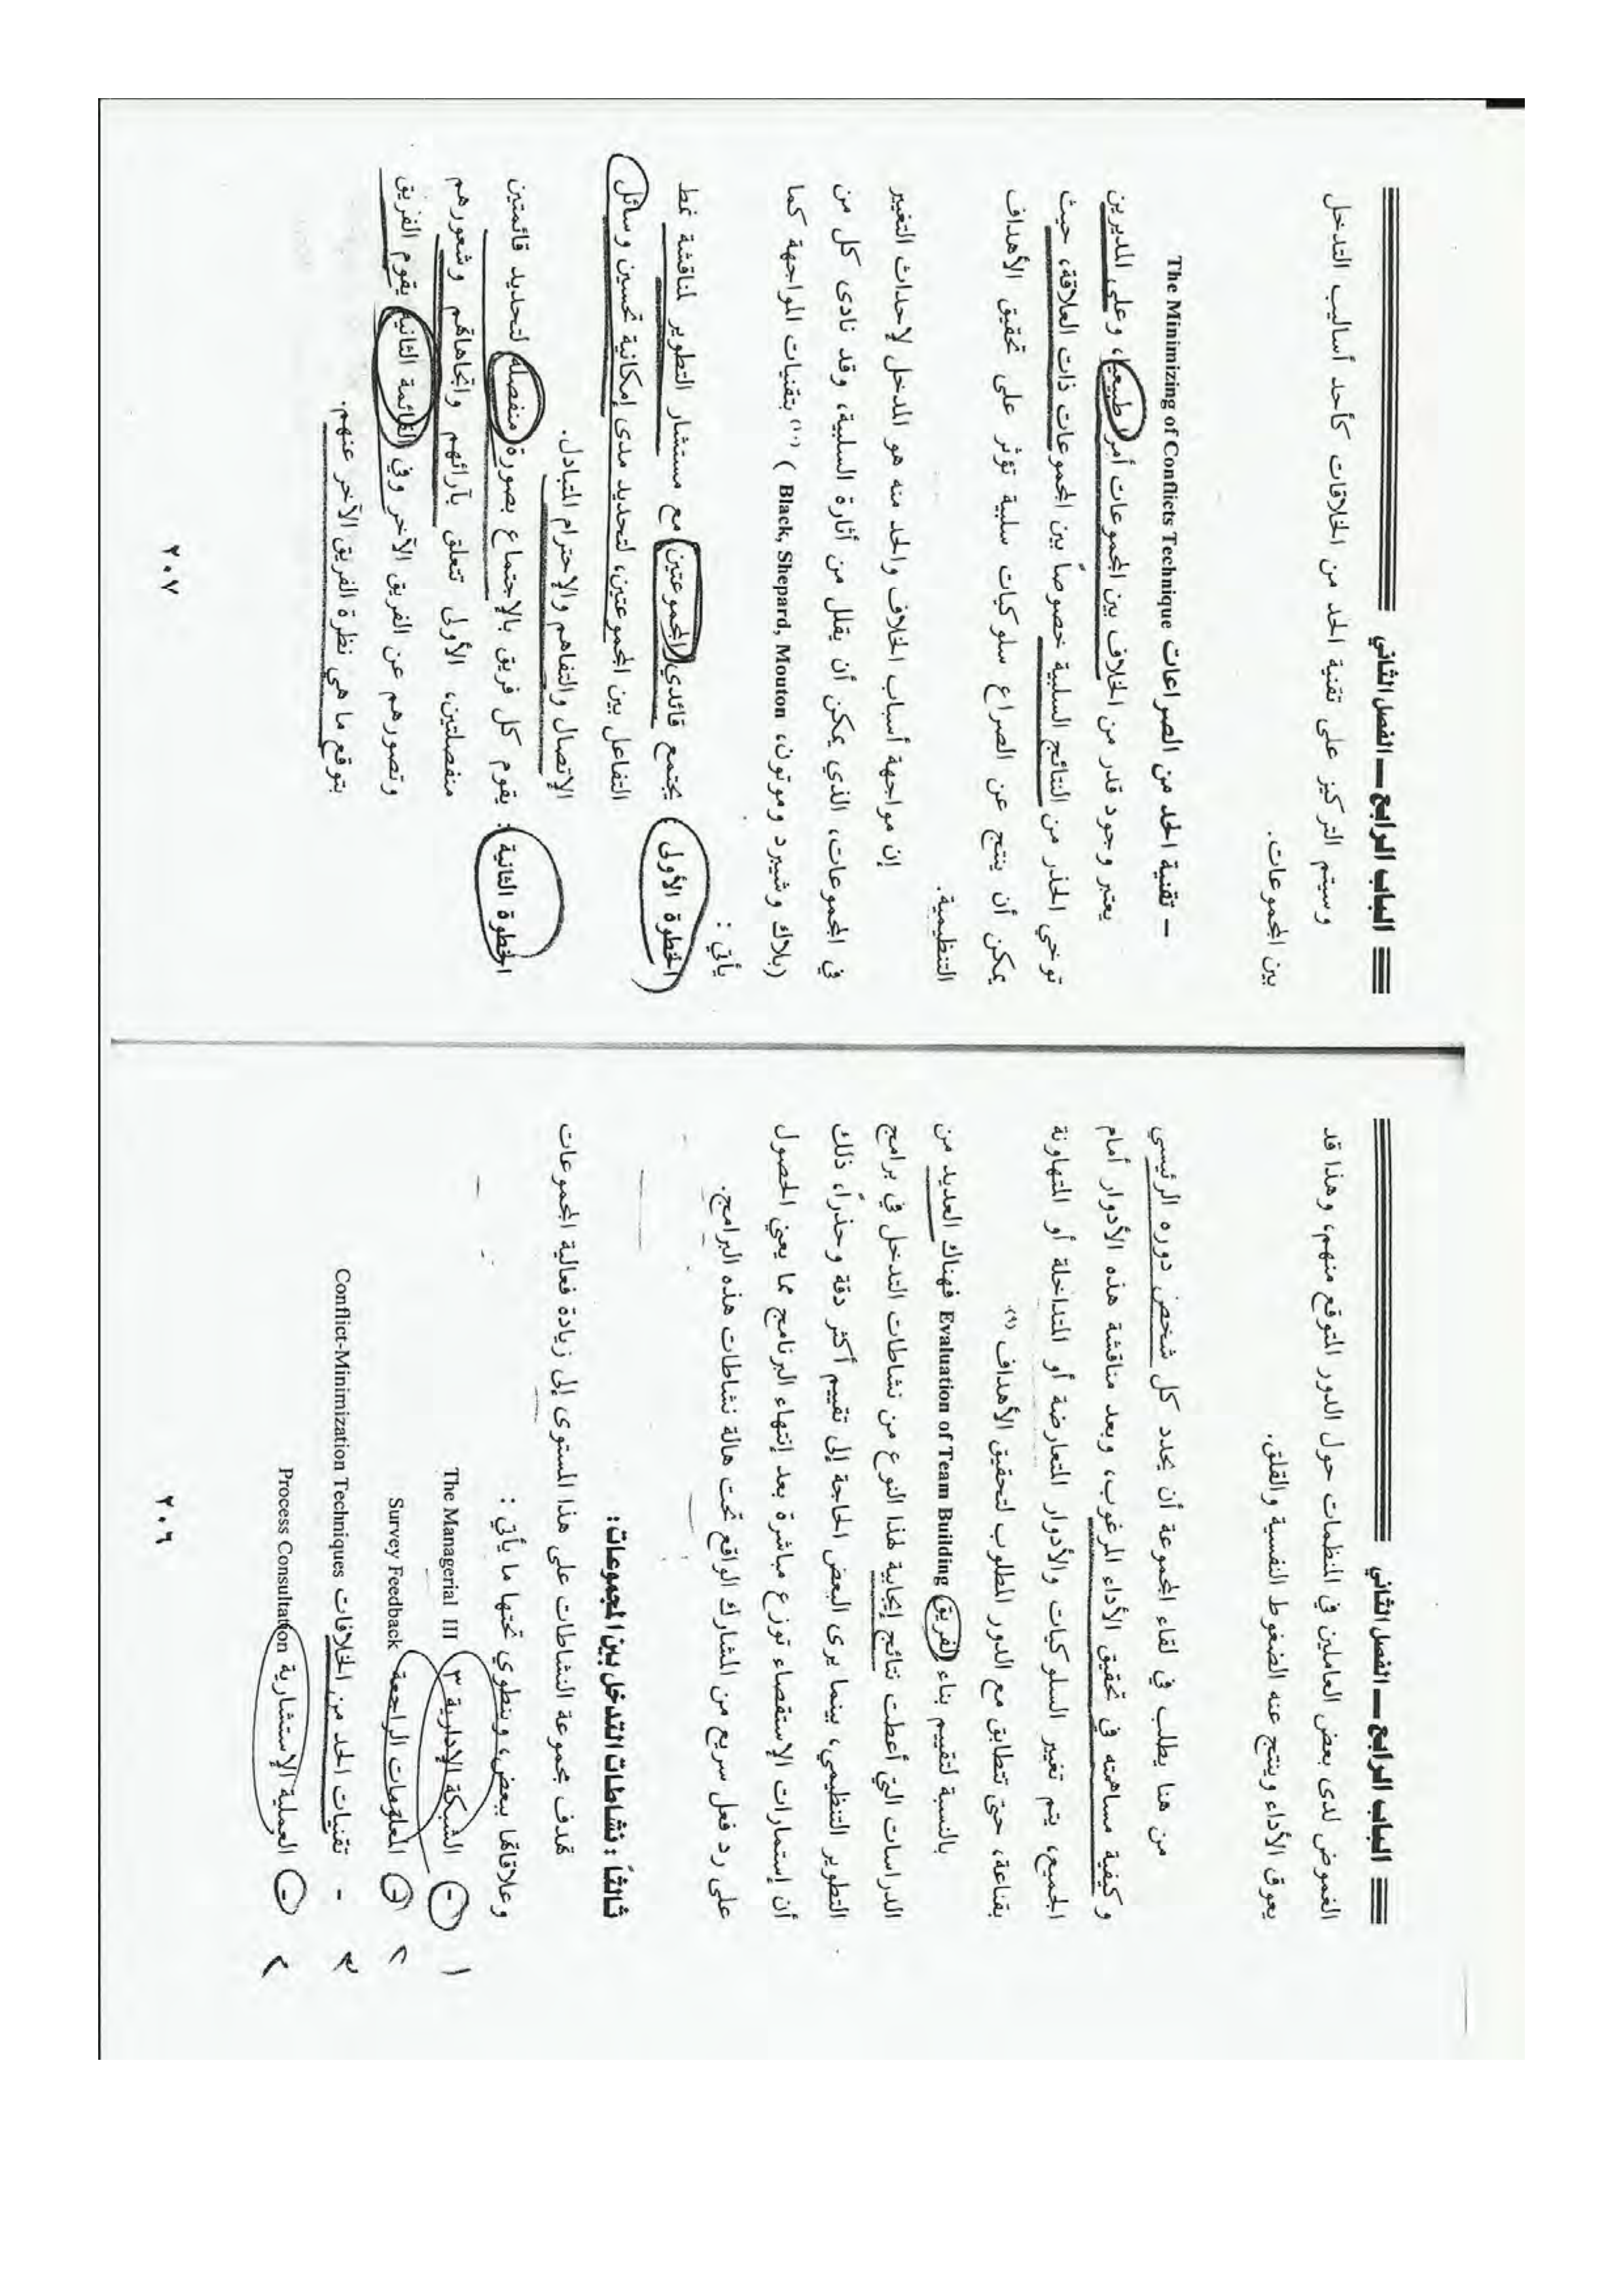 الباب الرابع — الفصل الثاني
الغموض لدى بعض العاملين في المنظمات حول الدور المتوقع منهم، وهذا قد
يعوق الأداء وينتج عنه الضغوط النفسية والقلق.
من هنا يطلب في لقاء المجموعة أن يحدد كل شخص دوره الرئيسي
وكيفية مساهمته في تحقيق الأداء المرغوب، وبعد مناقشة هذه الأدوار أمام
الجميع، يتم تغيير السلوكيات والأدوار المتعارضة أو المتداخلة أو المتهاونة
بقناعة، حتى تتطابق مع الدور المطلوب لتحقيق الأهداف (٩).
بالنسبة لتقييم بناء الفريق Evaluation of Team Building فهناك العديد من
الدراسات التي أعطت نتائج إيجابية لهذا النوع من نشاطات التدخل في برامج
التطوير التنظيمي، بينما يرى البعض الحاجة إلى تقييم أكثر دقة وحذراً، ذلك
أن إستمارات الإستقصاء توزع مباشرة بعد إنتهاء البرنامج مما يعني الحصول
على رد فعل سريع من المشارك الواقع تحت هالة نشاطات هذه البرامج.
ثالثاً : نشاطات التدخل بين المجموعات:
تهدف مجموعة النشاطات على هذا المستوى إلى زيادة فعالية المجموعات
وعلاقاتها ببعض، وينطوي تحتها ما يأتي :
- الشبكة الإدارية ٣ The Managerial III ١
- المعلومات الراجعة Survey Feedback ٢
- تقنيات الحد من الخلافات Conflict-Minimization Techniques ٣
- العملية الإستشارية Process Consultation ٤
٢٠٦
الباب الرابع — الفصل الثاني
وسيتم التركيز على تقنية الحد من الخلافات كأحد أساليب التدخل
بين المجموعات.
– تقنية الحد من الصراعات The Minimizing of Conflicts Technique
يعتبر وجود قدر من الخلاف بين المجموعات أمرا طبيعيا، وعلى المديرين
توخي الحذر من النتائج السلبية خصوصاً بين المجموعات ذات العلاقة، حيث
يمكن أن ينتج عن الصراع سلوكيات سلبية تؤثر على تحقيق الأهداف
التنظيمية.
إن مواجهة أسباب الخلاف والحد منه هو المدخل لإحداث التغيير
في المجموعات، الذي يمكن أن يقلل من أثارة السلبية، وقد نادى كل من
(بلاك وشيبرد وموتون، Black, Shepard, Mouton ) (١٠) بتقنيات المواجهة كما
يأتي :
الخطوة الأولى : يجتمع قائدي المجموعتين مع مستشار التطوير لمناقشة نمط
التفاعل بين المجموعتين، لتحديد مدى إمكانية تحسين وسائل
الإتصال والتفاهم والإحترام المتبادل.
الخطوة الثانية : يقوم كل فريق بالإجتماع بصورة منفصلة لتحديد قائمتين
منفصلتين، الأولى تتعلق بآرائهم واتجاهاتهم وشعورهم
وتصورهم عن الفريق الآخر وفي القائمة الثانية يقوم الفريق
بتوقع ما هي نظرة الفريق الآخر عنهم.
٢٠٧